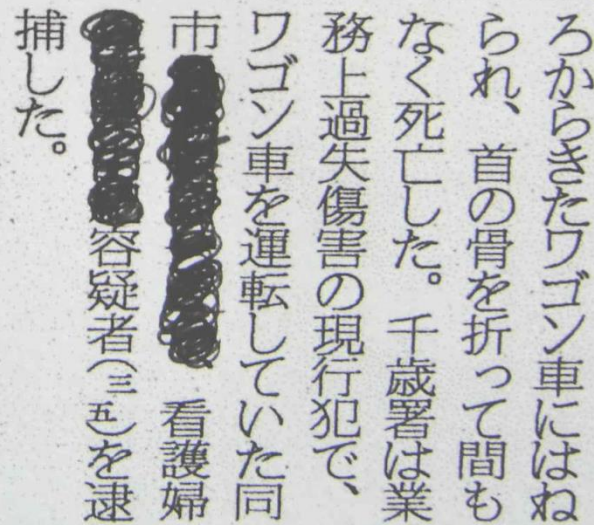 ろからきたワゴン車にはね
られ、首の骨を折って間も
なく死亡した。千歳署は業
務上過失傷害の現行犯で、
ワゴン車を運転していた同
市 看護婦
容疑者(三五)を逮
捕した。